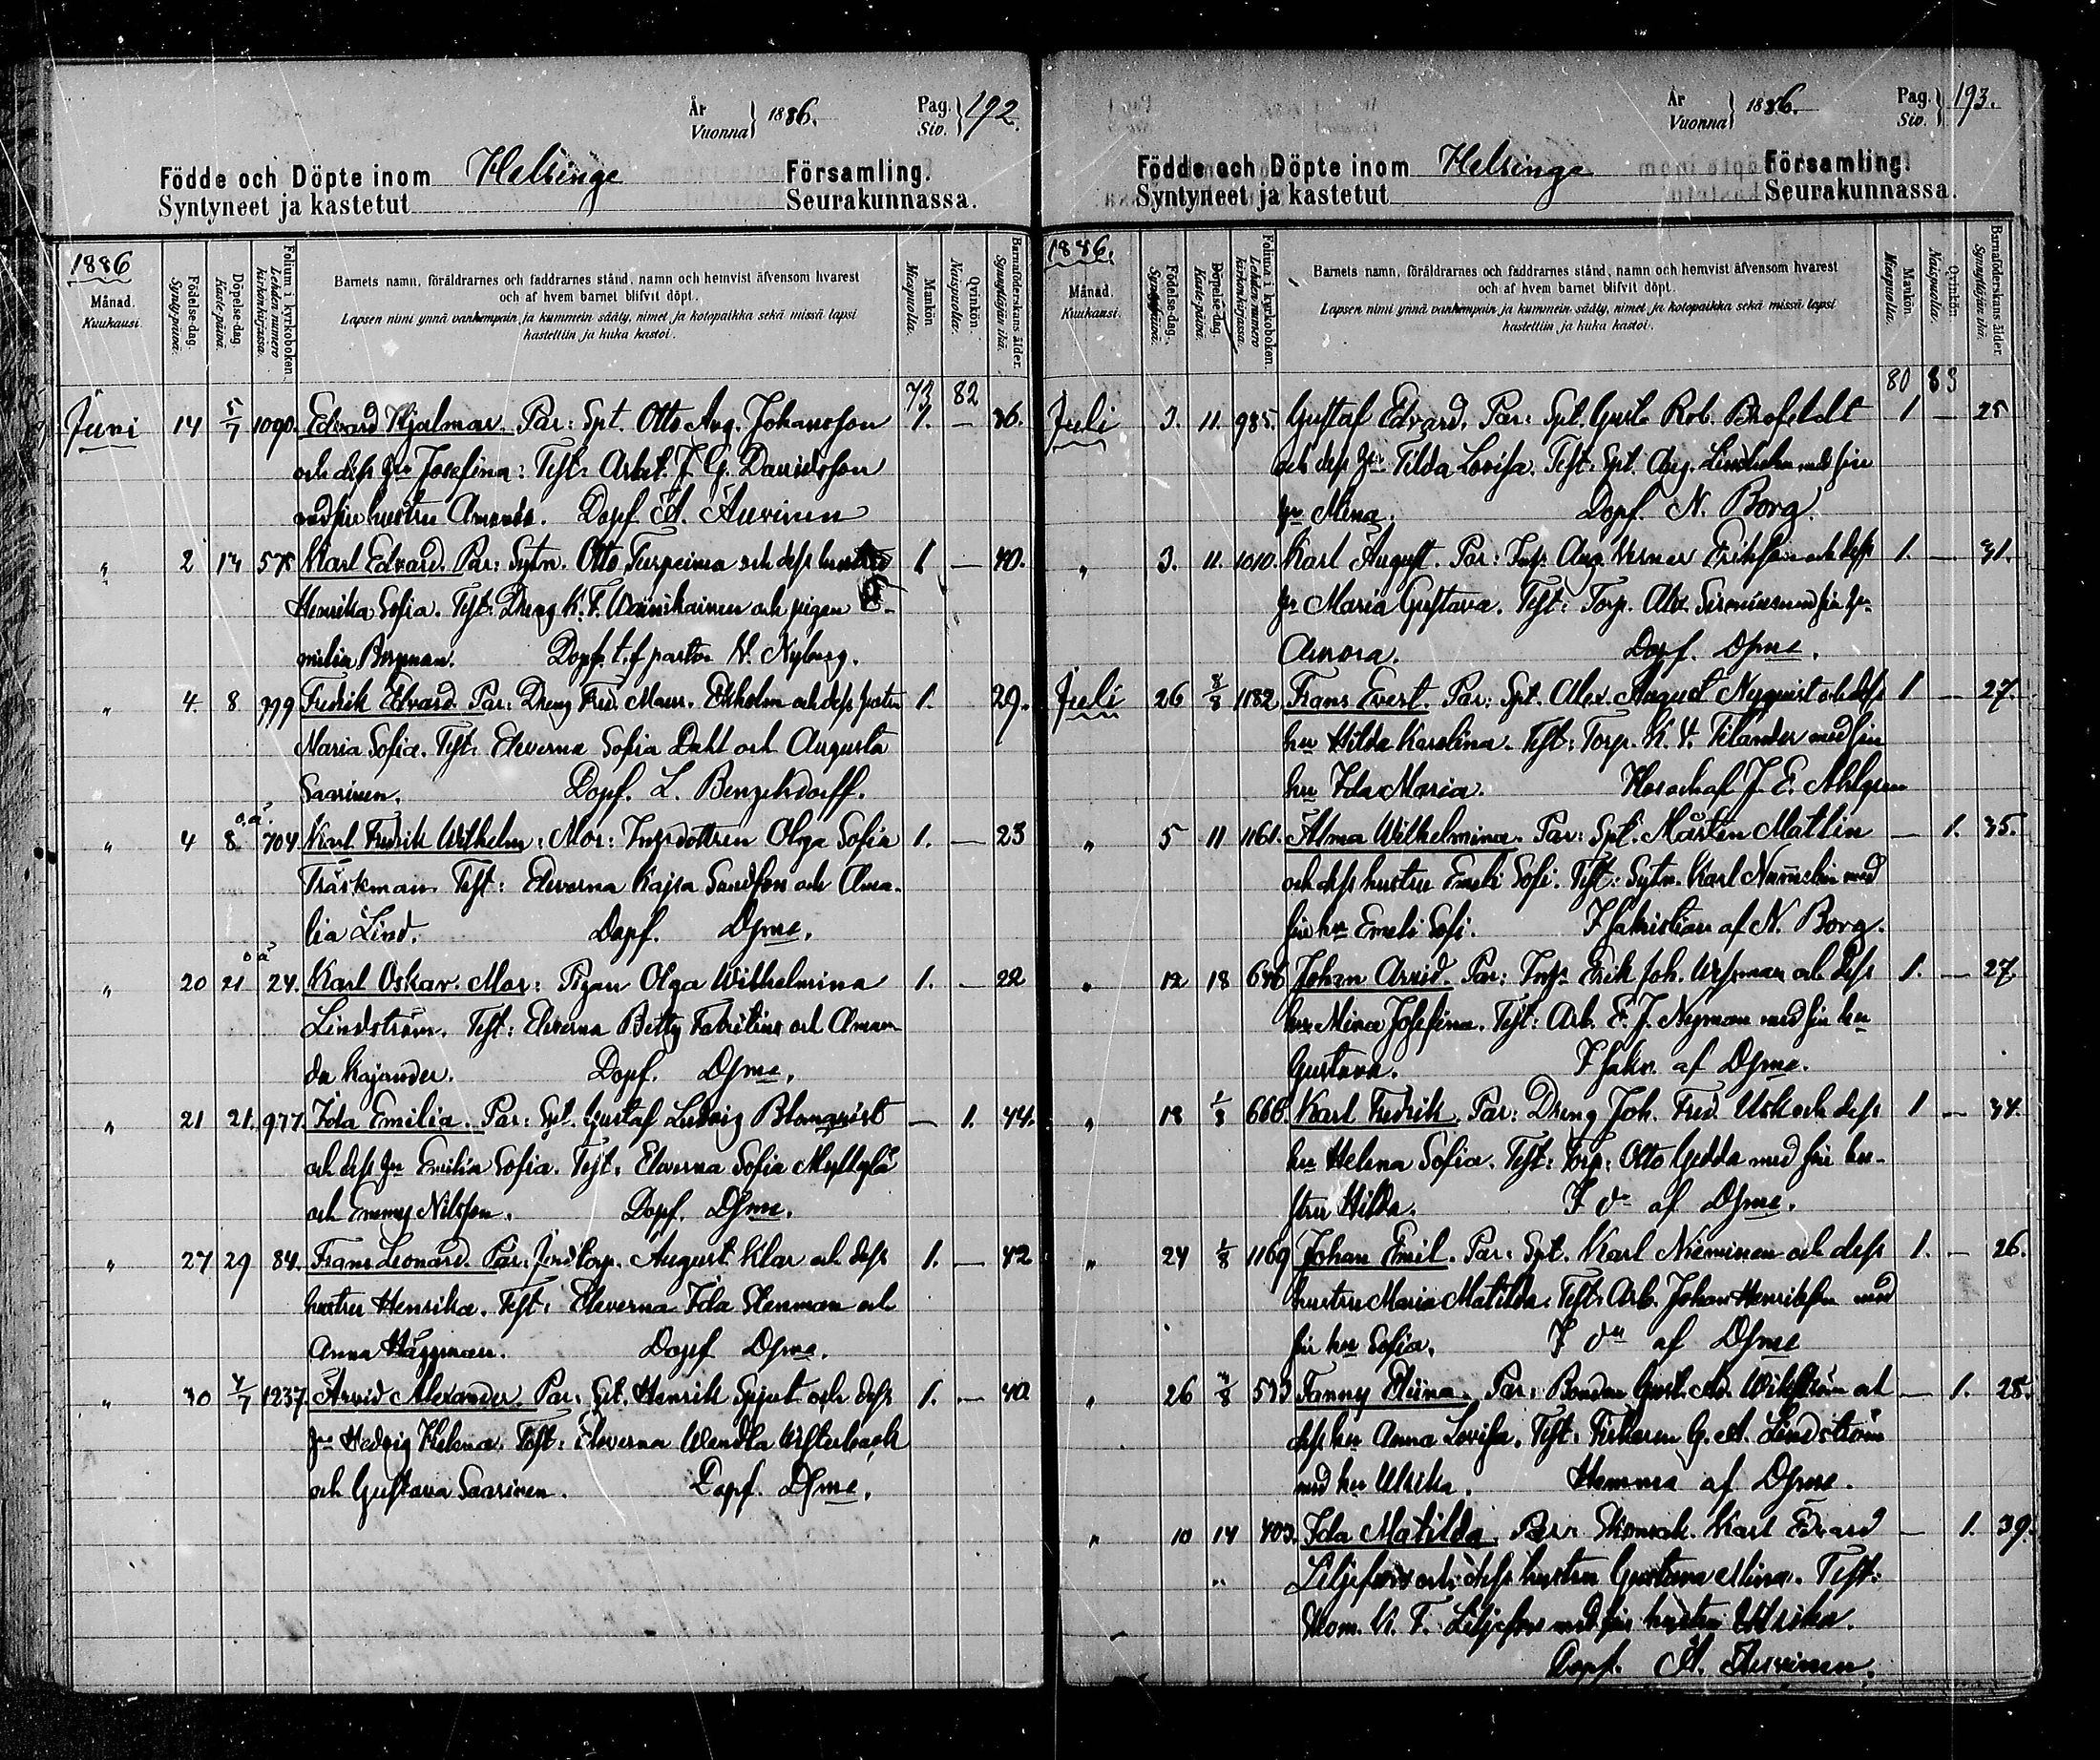 År
Vuonna } 1886. Pag. Siv. } 192.
Födde och Döpte inom Helsinge Församling.
Syntyneet ja kastetut Seurakunnassa.
1886
Månad. Kuukausi.
Födelse-dag. Synty-päivä.
Döpelse-dag. Kaste-päivä.
Folium i kyrkoboken. Lehden numero kirkonkirjassa.
Barnets namn, föräldrarnes och faddrarnes stånd, namn och hemvist äfvensom hvarest
och af hvem barnet blifvit döpt.
Lapsen nimi ynnä vanhempain ja kummein sääty, nimet ja kotopaikka sekä missä lapsi
kastettiin ja kuka kastoi.
Mankön Miespuolia.
Qvinkön. Naispuolia.
Barnaföderskans ålder. Synnyttäjän ikä.
73 82
Juni 14 5/7 1090. Edvard Hjalmar. Par: Spt. Otto Aug. Johansson 1. — 36.
och dess hu Josefina: Test: Arbet. J. G. Davidsson
med sin hustru Amanda. Döpf. A. Auvinen
" 2 14 575 Karl Edvard. Par: Sytn. Otto Turpeima och dess hustru 1 — 40.
Henrika Sofia. Test: Dreng K. F. Wainikainen och pigan E-
milia Bergman. Döpf. t. f. pastor N. Nyberg.
" 4. 8. 999 Fredrik Edvard. Par: Dreng Fred. Maur. Ekholm och dess hustru 1. 29.
Maria Sofia. Test: Eleverna Sofia Dahl och Augusta
Saarinen. Döpf. L. Bengelsdorff.
o.ä.
" 4 8. 704. Karl Fredrik Wilhelm: Mor: Inhysdottren Olga Sofia 1. — 23
Träskman. Test: Eleverna Kajsa Sundfors och Ama-
lia Lind. Döpf. Dsme.
o ä
" 20 21 24. Karl Oskar. Mor: Pigan Olga Wilhelmina 1. — 22
Lindström. Test: Eleverna Betty Fabritius och Aman-
da Kajander. Döpf. Dsme.
" 21 21. 977. Ida Emilia. Par: Spt. Gustaf Ludvig Blomqvist — 1. 44.
och dess hu Emilia Sofia. Test: Eleverna Sofia
och Emmy Nilsson. Döpf. Dsme.
" 27 29 84. Frans Leonard. Par: torp. August Klar och dess 1. — 42
hustru Henrika. Test: Eleverna Ida Stenman och
Anna Häggman. Döpf Dsme.
" 30 4/7 1237. Arvid Alexander. Par: Spt. Henrik Spjut och dess 1. — 40
hu Hedvig Helena. Test: Eleverna Wendla Westerback
och Gustava Saarinen. Döpf. Dsme.
År
Vuonna } 1886. Pag. Siv. } 193.
Födde och Döpte inom Helsinge Församling.
Syntyneet ja kastetut Seurakunnassa.
1886.
Månad. Kuukausi.
Födelse-dag. Syntypäivä.
Döpelse-dag. Kaste-päivä.
Folium i kyrkoboken. Lehden numero kirkonkirjassa.
Barnets namn, föräldrarnes och faddrarnes stånd, namn och hemvist äfvensom hvarest
och af hvem barnet blifvit döpt.
Lapsen nimi ynnä vanhempain ja kummein sääty, nimet ja kotopaikka sekä missä lapsi
kastettiin ja kuka kastoi.
Mankön. Miespuolia.
Qvinkön. Naispuolia.
Barnaföderskans ålder. Synnyttäjän ikä.
80 83
Juli 3. 11. 985. Gustaf Edvard. Par: Spt. Gust. Rob. Brofeldt 1 — 25
och dess hu Tilda Lovisa. Test: Spt. Aug. Lindholm med sin
hu Mina. Döpf. N. Borg.
" 3. 11. 1010. Karl August. Par: Inhys. Aug. Verner Eriksson och dess 1. — 31.
hu Maria Gustava. Test: Torp. Alex. Sirenius med sin hu
Aurora. Döpf. Dsme.
Juli 26 8/8 1182 Frans Evert. Par: Spt. Alex. August Nyqvist och dess 1 — 27.
hu Hilda Karolina. Test: Torp. K. V. Tilander med sin
hu Ida Maria. Hos och af J. E. Ahlgren
" 5 11 1161. Alma Wilhelmina. Par: Spt. Mårten Matlin — 1. 35.
och dess hustru Emeli Sofi. Test: Sytn. Karl Nummelin med
sin hu Emeli Sofi. I sakristian af N. Borg.
" 12 18 646 Johan Arvid. Par: Inhys Erik Joh. Wesman och dess 1. — 27.
hu Mina Josefina. Test: Arb. E. J. Nyman med sin hu
Gustava. I sakr. af Dsme.
" 18 1/8 666. Karl Fredrik. Par: Dreng Joh. Fred. Usk och dess 1 — 34.
hu Helena Sofia. Test: Torp: Otto Gedda med sin hu-
stru Hilda. I do af Dsme.
" 24 1/8 1169 Johan Emil. Par: Spt. Karl Nieminen och dess 1. — 26.
hustru Maria Matilda. Test: Arb. Johan Henriksson med
sin hu Sofia. I do af Dsme
" 26 4/8 593 Fanny Eliina. Par: Bonden Gust. Ad. Wikström och — 1. 28.
dess hu Anna Lovisa. Test: Fiskaren G. A. Lindström
med hu Ulrika. Hemma af Dsme.
" 10 14 403. Ida Matilda. Par: Skomak. Karl Edvard — 1. 39.
Liljefors och dess hustru Gustava Mina. Test:
Skom. K. F. Liljefors med sin hustru Ulrika.
Döpf. A. Auvinen.